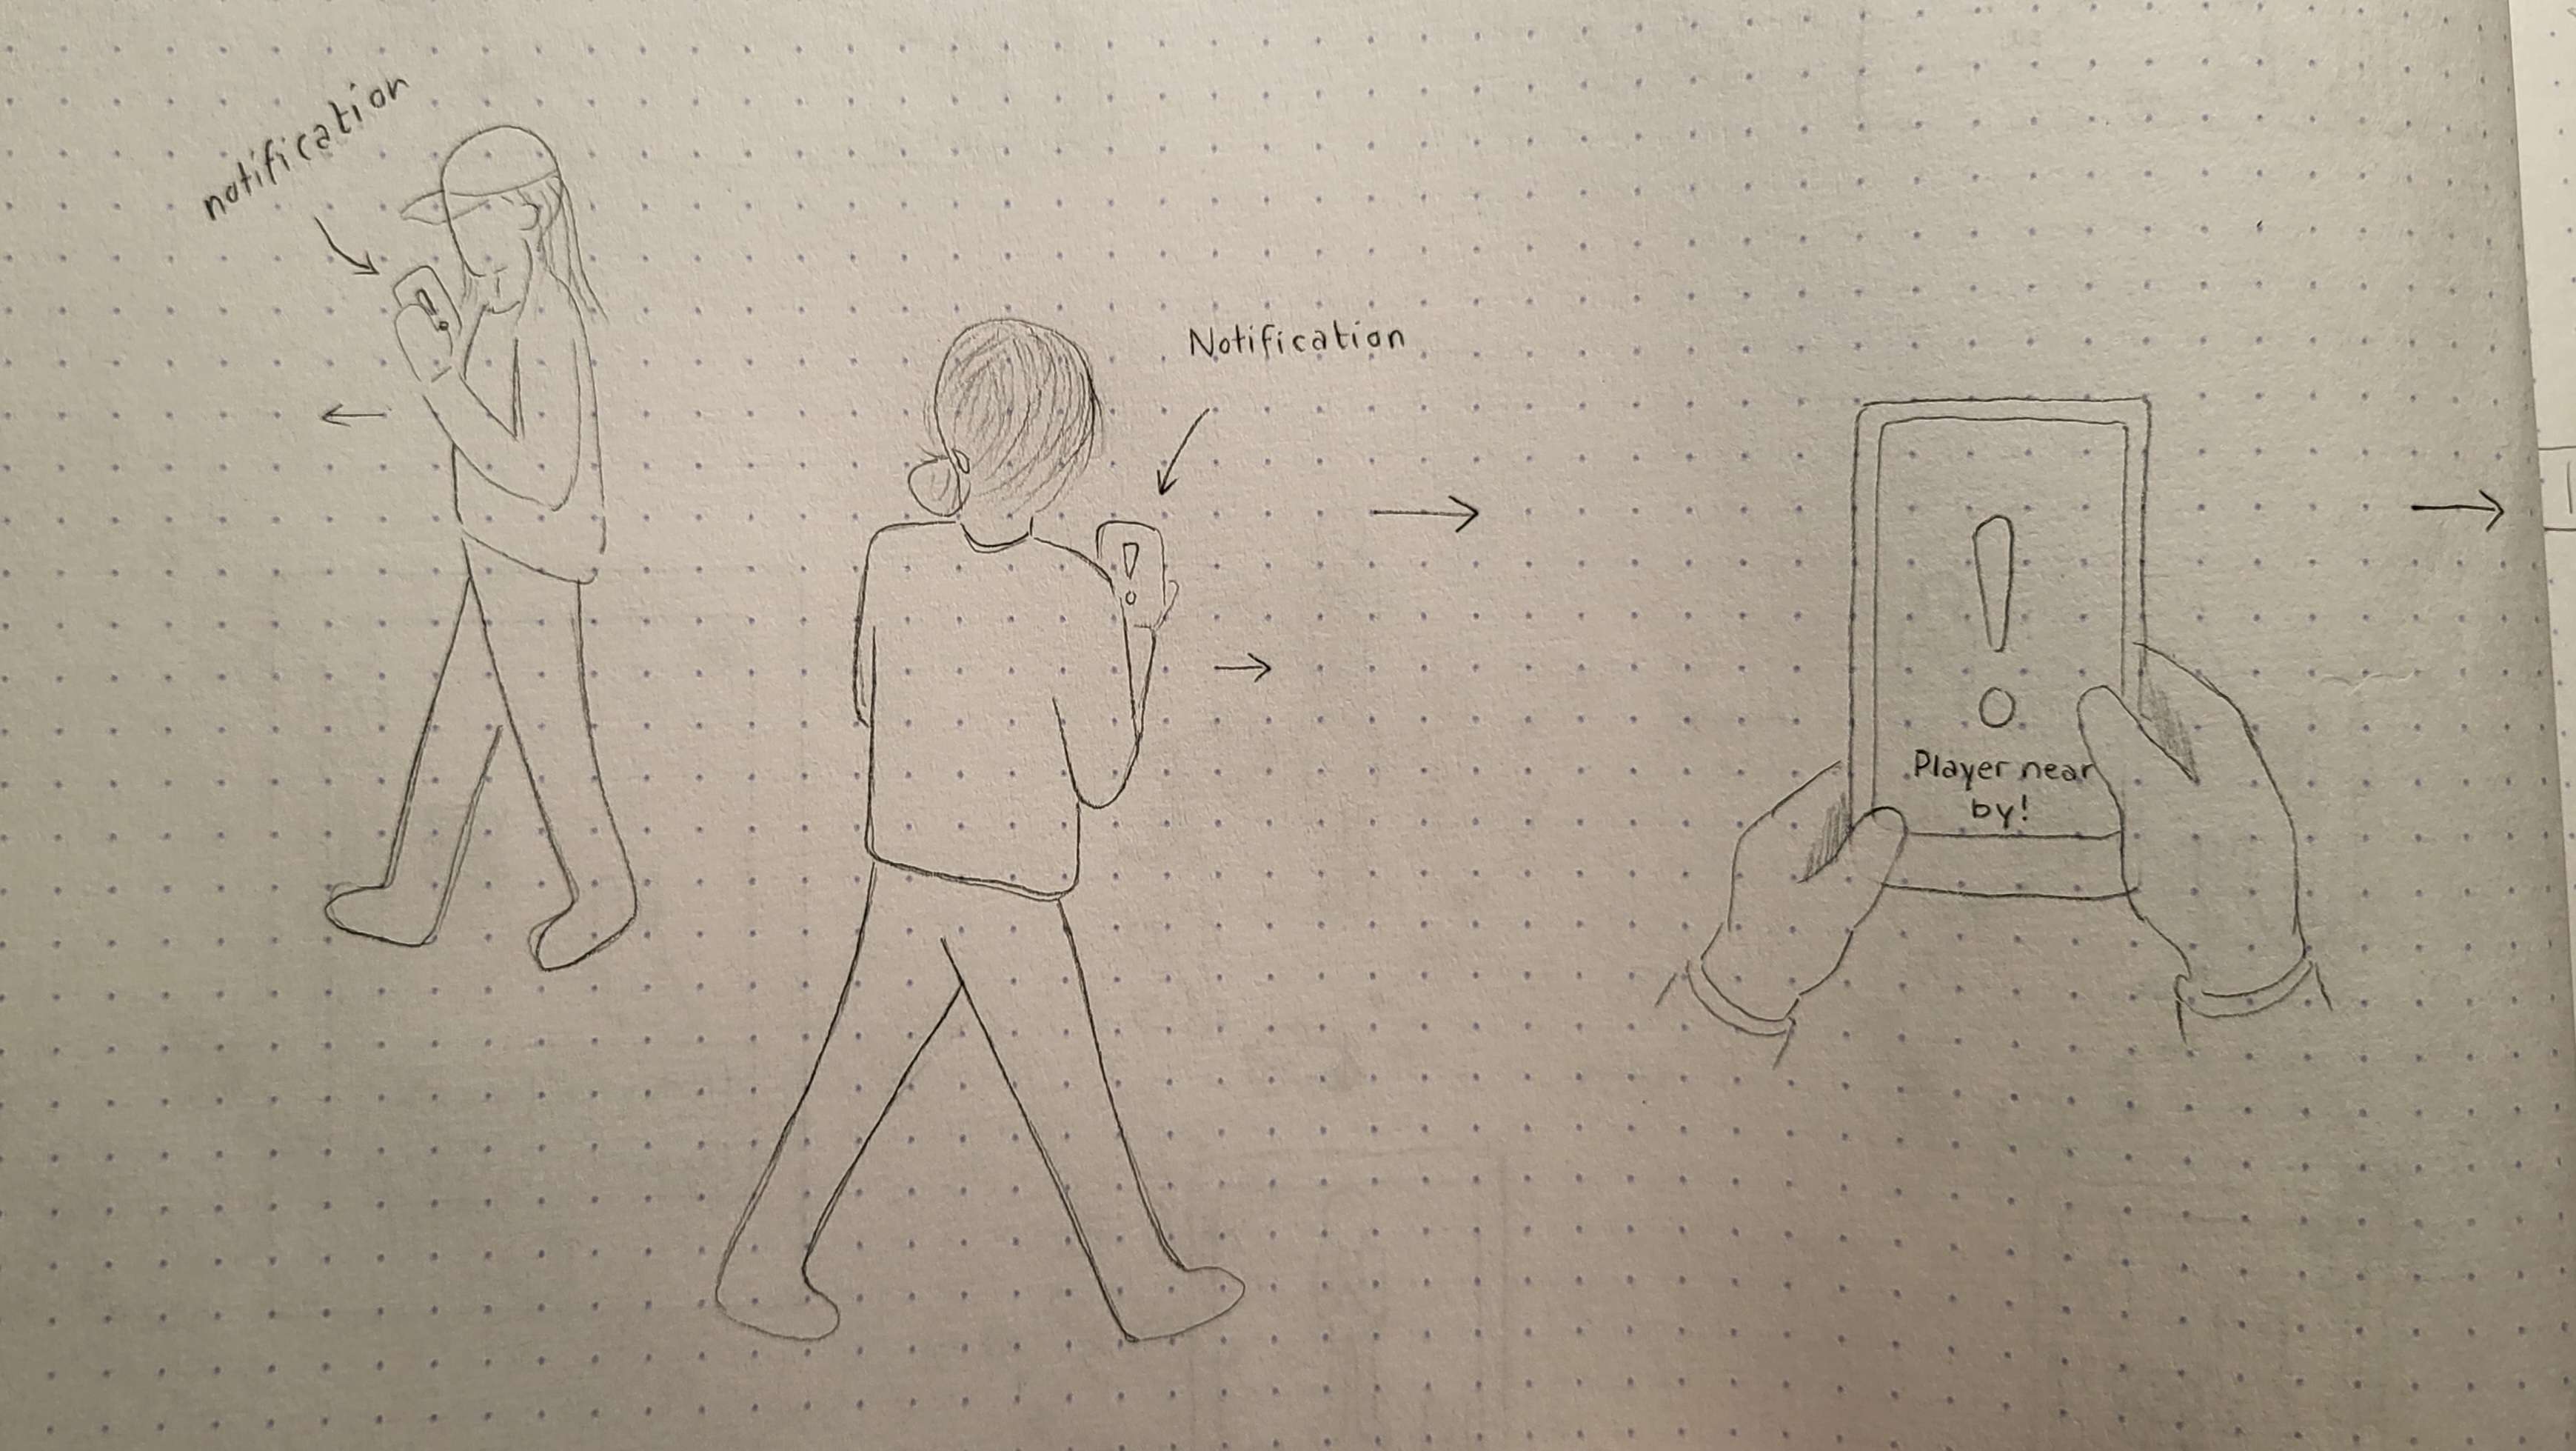 notification
Notification
!
!
!
Player near
by!